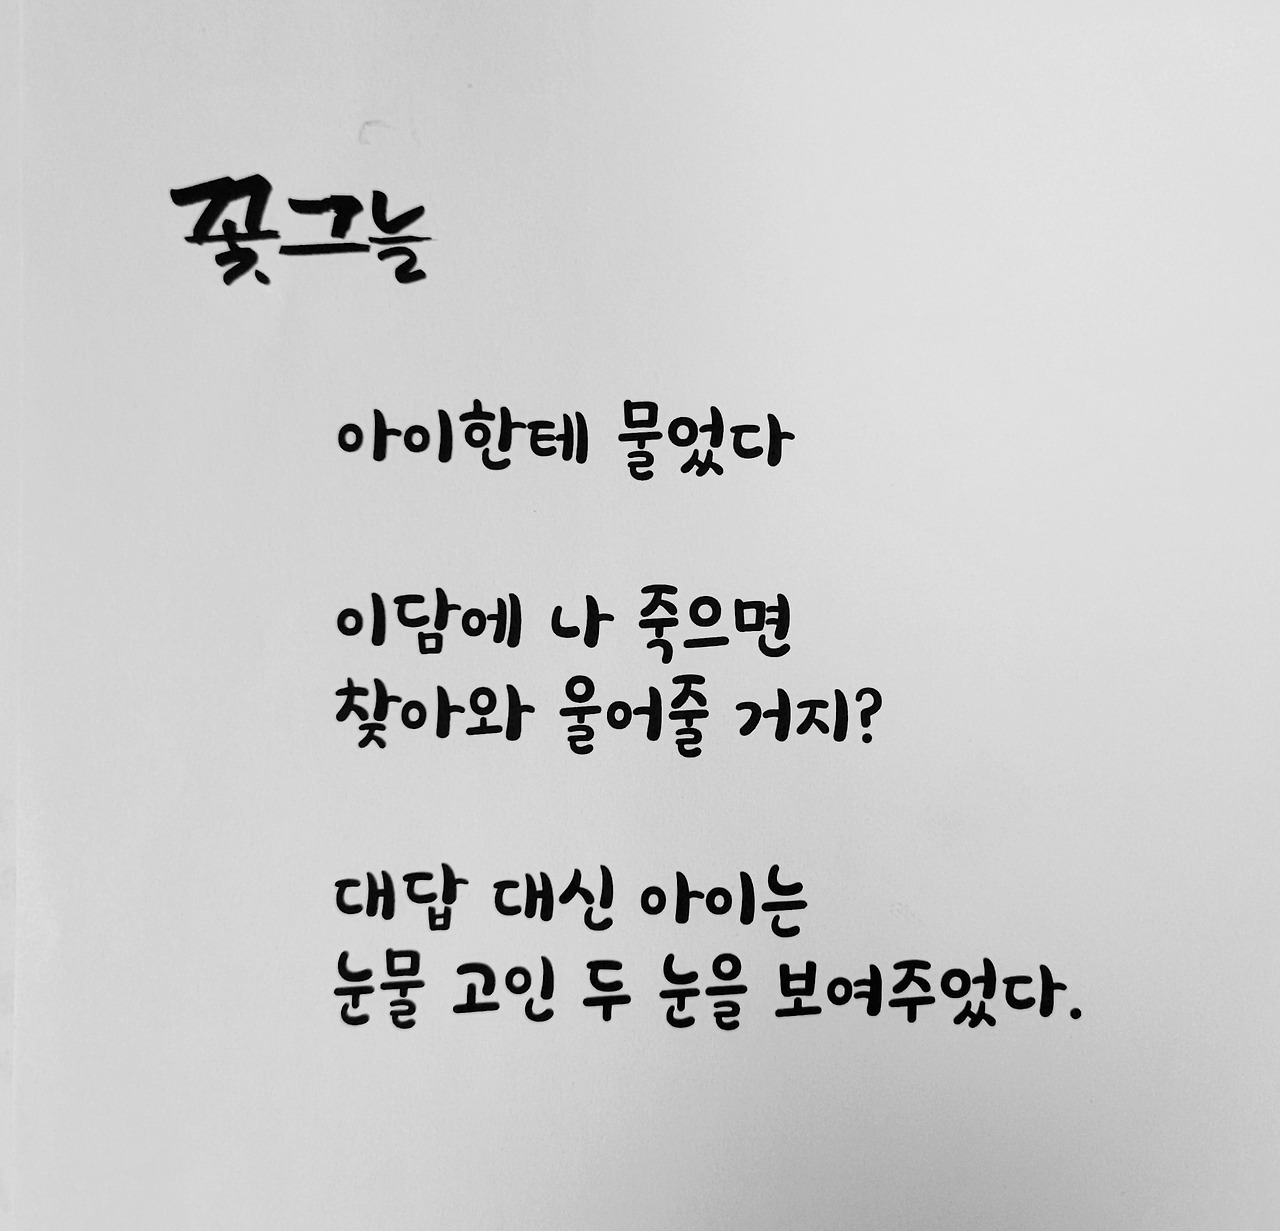 꽃그늘
아이한테 물었다
이담에 나 죽으면
찾아와 울어줄 거지?
대답 대신 아이는
눈물 고인 두 눈을 보여주었다.